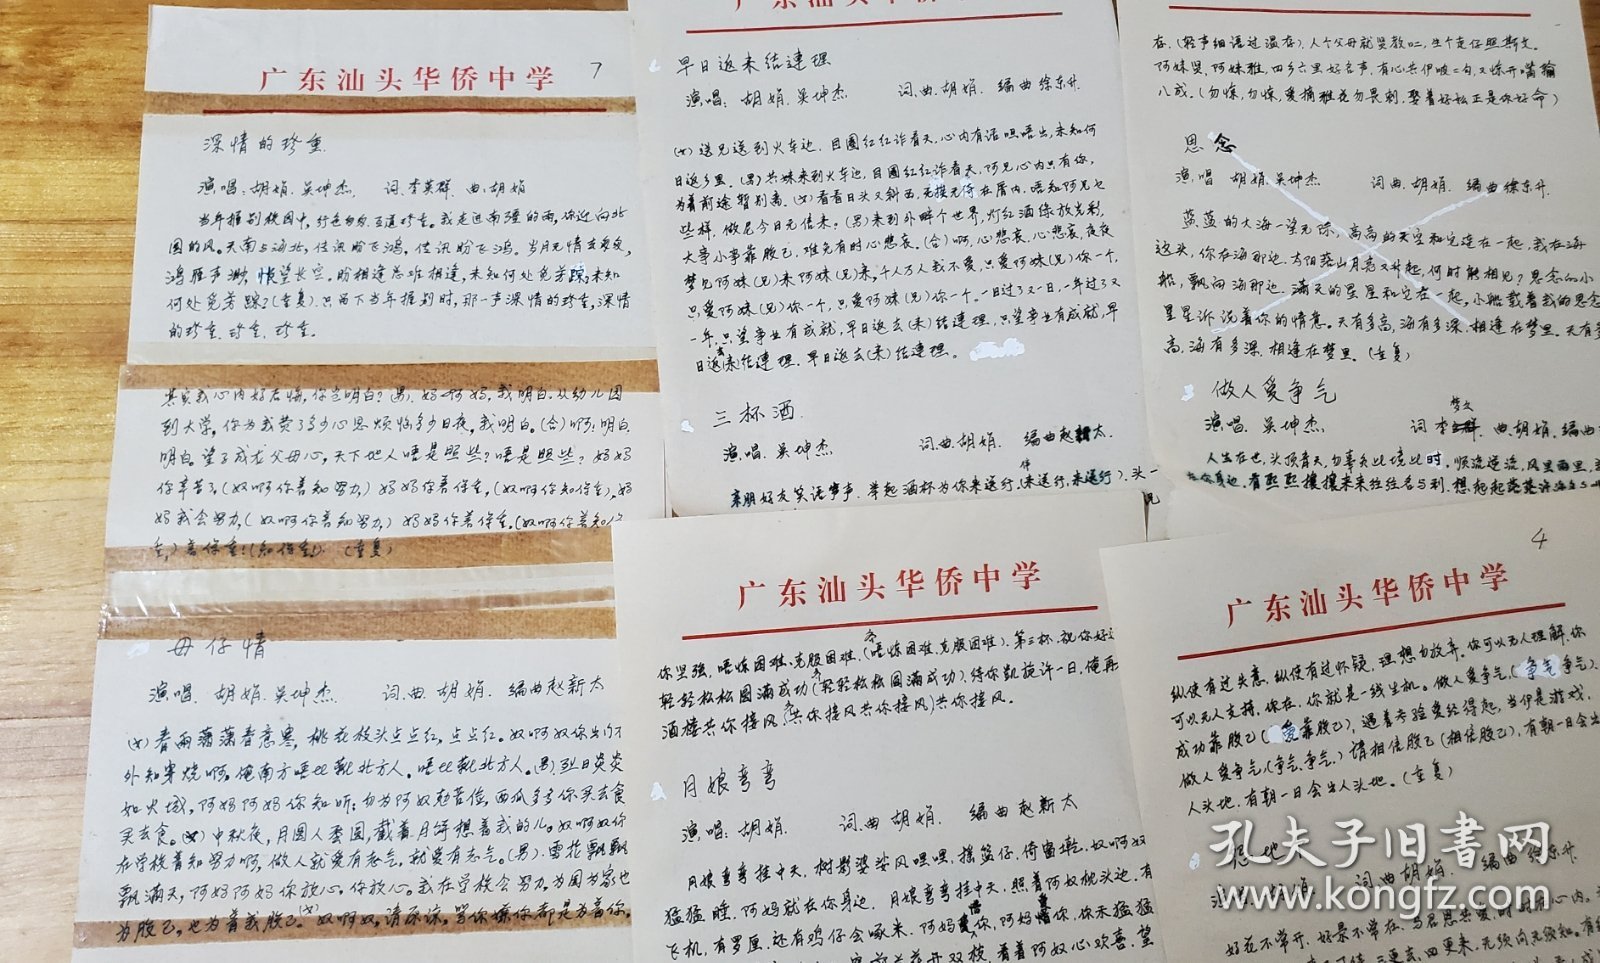 广东汕头华侨中学
7
深情的珍重
演唱:胡娟.吴坤杰 词:李英群 曲:胡娟
当年握别校园中,行色匆匆互道珍重。我走进南疆的雨,你迎向北
国的风。天南与海北,佳讯盼飞鸿,佳讯盼飞鸿。岁月无情去匆匆,
鸿雁声渺,怅望长空。盼相逢总难相逢,未知何处觅芳踪,未知
何处觅芳踪?(重复)只留下当年握别时,那一声深情的珍重,深情
的珍重.珍重.珍重。
其实我心内好后悔,你岂明白?(男)妈啊妈,我明白.从幼儿园
到大学,你为我费了多少心思烦恼多少日夜,我明白。(合)啊!明白.
明白。望子成龙父母心,天下地人唔是照些?唔是照些?妈妈
你辛苦了,(奴啊你着知努力)妈妈你着保重,(奴啊你着知),妈
妈我会努力,(奴啊你着知努力)妈妈你着保重。(奴啊你着知保
重,)着保重!(知保重!)(重复)
母仔情
演唱.胡娟.吴坤杰 词曲 胡娟. 编曲赵新太
(女)春雨潇潇春意寒,桃花枝头点点红,点点红。奴啊奴你出门不
外知穿烧啊。俺南方唔比靴北方人。唔比靴北方人。(男)烈日炎炎
如火域,阿妈阿妈你知听:勿为阿奴勉苦俭,西瓜多多你买去食
买去食。(女)中秋夜,月圆人秀圆,截着月饼想着我的儿。奴啊奴你
在学校着知努力啊,做人就爱有志气,就爱有志气。(男).雪花飘飘
飘满天,阿妈阿妈你放心。你放心。我在学校会努力.为国为家也
为胶己,也为着我胶己。(女)奴啊奴,请原谅。骂你嫌你都是为着你。
广东汕头华侨中学
早日返来结连理
演唱:胡娟.吴坤杰 词.曲.胡娟. 编曲徐东升.
(女)送兄送到火车边.目圈红红诈看天,心内有话呾唔出,未知何
日返乡里。(男)共妹来到火车边,目圈红红诈看天,阿兄心内只有你,
为着前途暂别离。(女)看看日头又斜西,无摸无得在厝内,唔知阿兄乜
些样,做尼今日无信来。(男)来到外畔个世界,灯红酒绿放光彩,
大事小事靠胶己,难免有时心悲哀。(合)啊,心悲哀.心悲哀,夜夜
梦见阿妹(兄)来阿妹(兄)来,千人万人我不爱,只爱阿妹(兄)你一个,
只爱阿妹(兄)你一个,只爱阿妹(兄)你一个。一日过了又一日,一年过了又
一年,只望事业有成就,早日返去(来)结连理,只望事业有成就,早
日返去(来)结连理.早日返去(来)结连理。
三杯酒.
演唱:吴坤杰 词曲.胡娟. 编曲赵新太.
亲朋好友笑语声声.举起酒杯为你来送行,(来送行,来送行).头一
广东汕头华侨中学
你坚强,唔惊困难.克服困难.(唔惊困难.克服困难).第三杯.祝你好
轻轻松松圆满成功(轻轻松松圆满成功).待你凯旋许一日,俺再
酒楼共你接风,(共你接风共你接风)共你接风。
月娘弯弯
演唱:胡娟. 词.曲 胡娟. 编曲 赵新太
月娘弯弯挂中天,树影婆娑风哩哩,摇篮仔,倚窗墘,奴啊奴
猛猛睡,阿妈就在你身边.月娘弯弯挂中天,照着阿奴枕头边.有
飞机,有罗厘.还有鸡仔会啄米.阿妈惜你,阿妈惜你,你未猛猛
开双枝,看着阿奴心欢喜.望
存.(轻声细语过温存).人个父母就哭教
阿妹贤,阿妹雅,四乡六里好名声.有心共伊呾二句,又惊开嘴输
八成.(勿惊,勿惊,爱摘雅花勿畏刺.娶着好姿正是你好命)
思念
演唱 胡娟.吴坤杰 词曲.胡娟. 编曲徐东升.
蓝蓝的大海一望无际,高高的天空和它连在一起,我在海
这头,你在海那边.太阳落山月亮又升起,何时能相见?思念的小
船,飘向海那边.满天的星星和它在一起,小船载着我的思念
星星诉说着你的情意。天有多高,海有多深.相逢在梦里.天有多
高,海有多深.相逢在梦里.(重复)
做人爱争气
演唱:吴坤杰. 词李梦文 曲.胡娟.编曲
人生在世,头顶青天,勿辜负此境此时.顺流逆流,风里雨里,
在你身边.有熙熙攘攘来来往往名与利.想起起
4
广东汕头华侨中学
纵使有过失意.纵使有过怀疑.理想勿放弃。你可以无人理解.你
可以无人支持.你在.你就是一线生机。做人爱争气.(争气争气).
成功靠胶己(爱靠胶己),遇着考验爱经得起,当伊是游戏.
做人爱争气(争气.争气.)请相信胶己(相信胶己),有朝一日会出
人头地.有朝一日会出人头地.(重复)
演唱 胡娟 词曲胡娟. 编曲徐东升
好花不常开.好景不常在.与君恩共爱.时时在心内.
孔夫子旧书网
www.kongfz.com